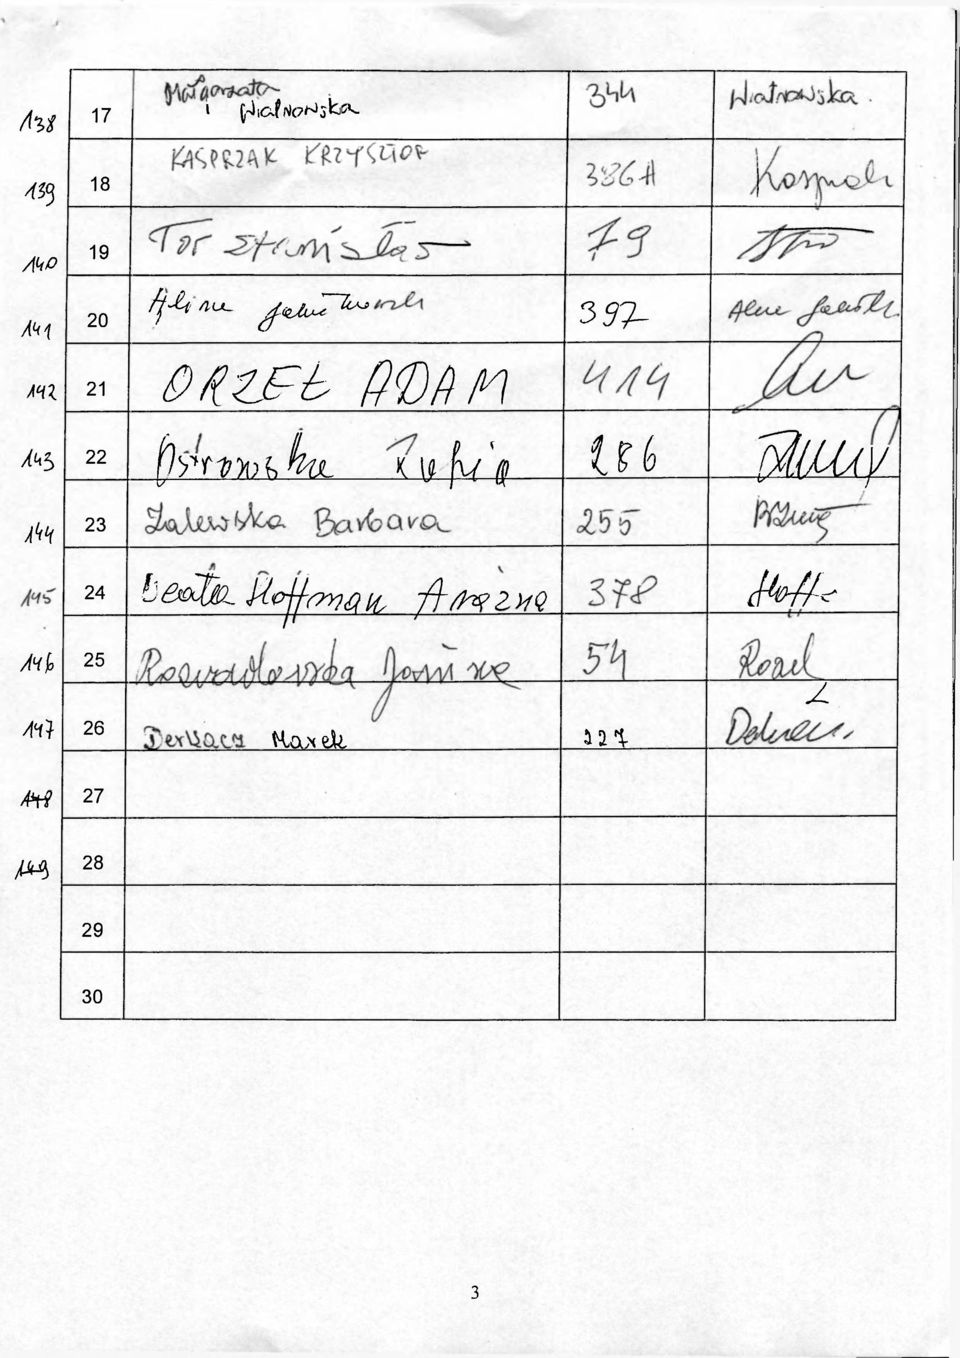 138 17 Małgorzata Wiatrowska 344 Wiatrowska.
139 18 KASPRZAK KRZYSZTOF 386A Kasprzak
140 19 Tor Stanisław 79
141 20 Alina 397
142 21 ORZEŁ ADAM 414
143 22 Ostrowska Zofia 286
144 23 Zalewska Barbara 255
145 24 Beata Hoffman 378 Hoff
146 25 Rozwadowska Janina 54
147 26 Derkacz Marek 227
148 27
149 28
29
30
3